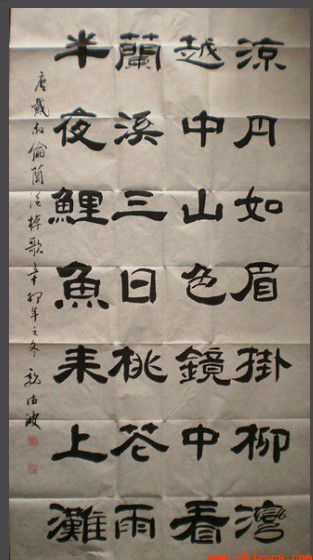 涼月如眉掛柳灣
越中山色鏡中看
蘭溪三日桃花雨
半夜鯉魚来上灘
唐戴叔倫蘭溪棹歌辛卯年之冬